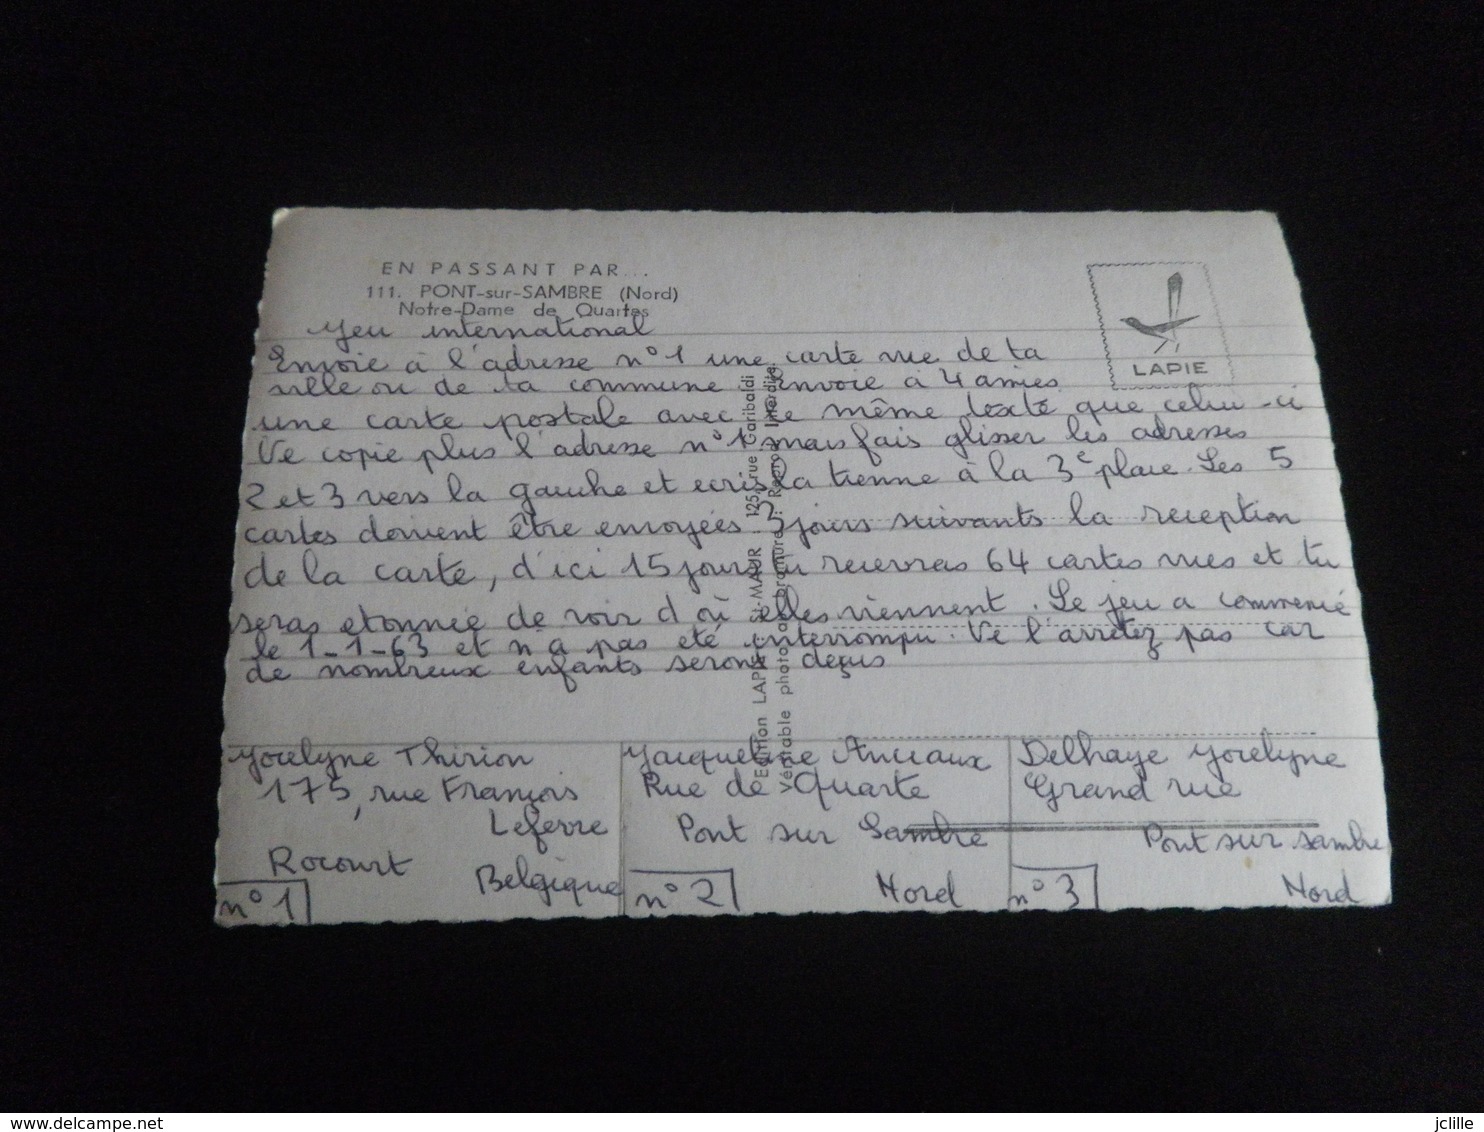 EN PASSANT PAR...
111. PONT-sur-SAMBRE (Nord)
Notre-Dame de Quartes
LAPIE
Jeu international
Envoie à l'adresse n°1 une carte vue de ta
ville ou de ta commune envoie à 4 amies
une carte postale avec le même texte que celui-ci
Ne copie plus l'adresse n°1 mais fais glisser les adresses
2 et 3 vers la gauche et ecris la tienne à la 3e place. Les 5
cartes doivent être envoyées 3 jours suivants la reception
de la carte, d'ici 15 jours tu recevras 64 cartes vues et tu
seras etonnée de voir d où elles viennent. Le jeu a commencé
le 1-1-63 et n a pas eté interrompu. Ne l'arretez pas car
de nombreux enfants seront deçus
Edition LAPIE St-MAUR 125, rue Garibaldi
Véritable photo au bromure: Repro Interdite
Jocelyne Thirion
175, rue François
Lefevre
Rocourt Belgique
n°1
Jacqueline Anciaux
Rue de Quarte
Pont sur Sambre
n°2 Nord
Delhaye Jocelyne
Grand rue
Pont sur sambre
n°3 Nord
http://www.delcampe.net
jclille